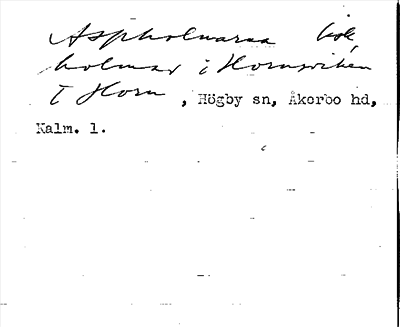 Aspholmarna
holmar i Hornsviken
T Horn, Högby sn, Åkerbo hd,
Kalm. l.